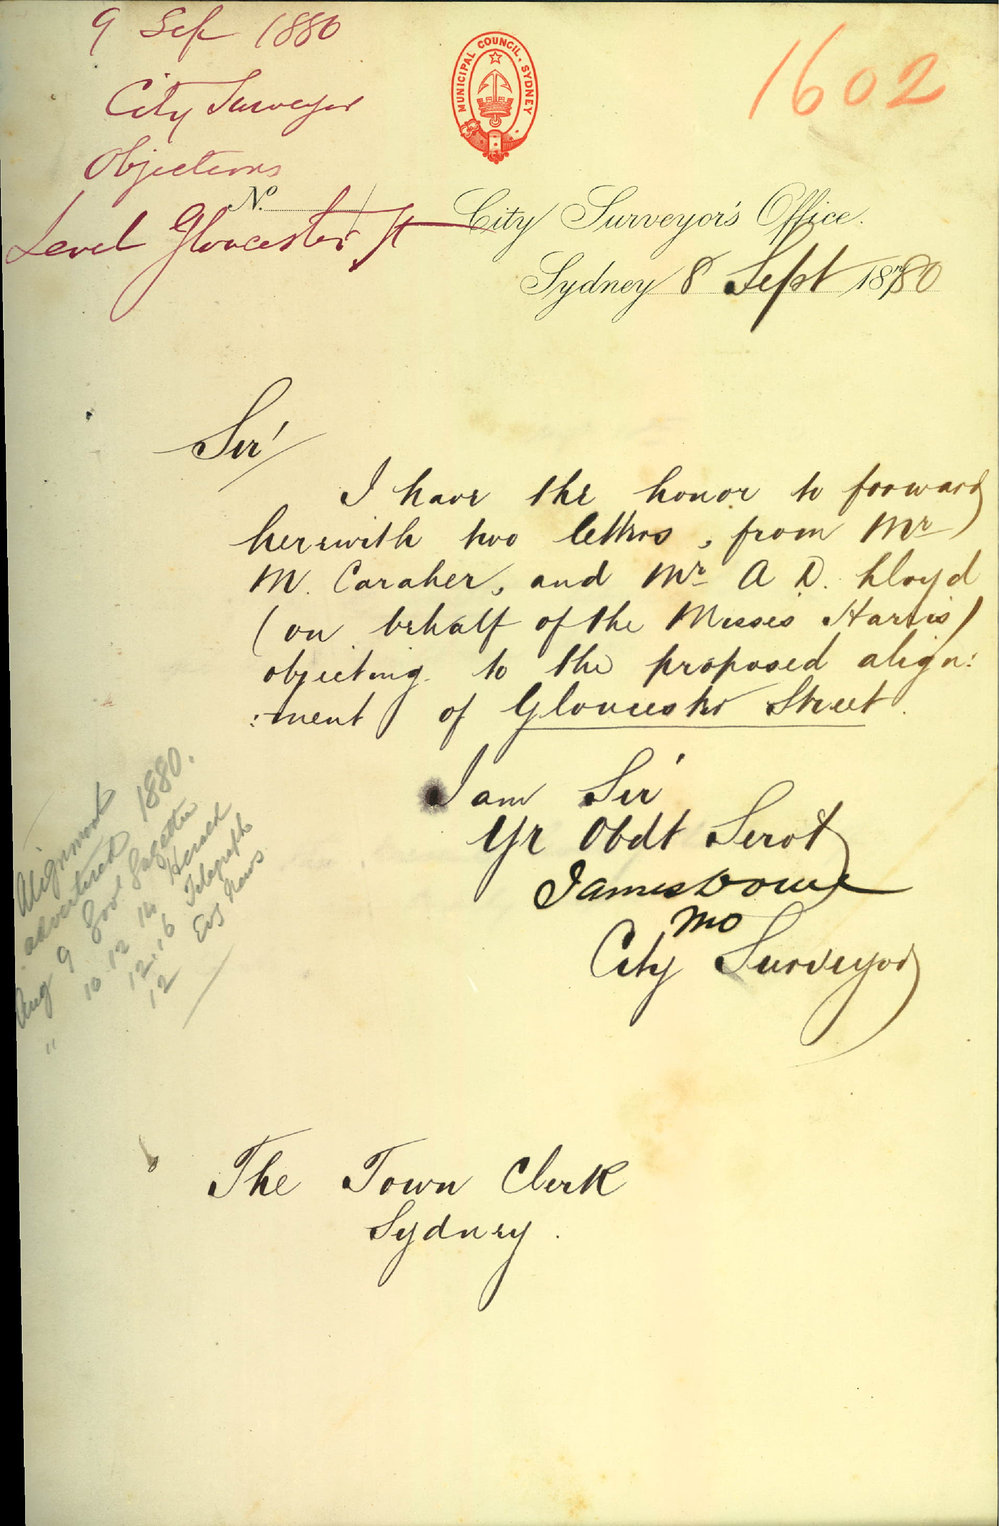 9 Sep 1880
City Surveyor
Objections
Level Gloucester St
MUNICIPAL COUNCIL. SYDNEY
1602
No.
City Surveyor's Office.
Sydney 8 Sept 1880
Sir/
I have the honor to forward
herewith two letters, from Mr
M. Caraher, and Mr A D. Lloyd
(on behalf of the Misses Harris)
objecting to the proposed align:
:ment of Gloucester Street.
I am Sir
Yr Obdt Servt
City Surveyor
The Town Clerk
Sydney.
Alignment
advertised 1880.
Aug 9 Gov Gazette
" 10 12 14 Herald
12.16 Telegraph
12 Evg News